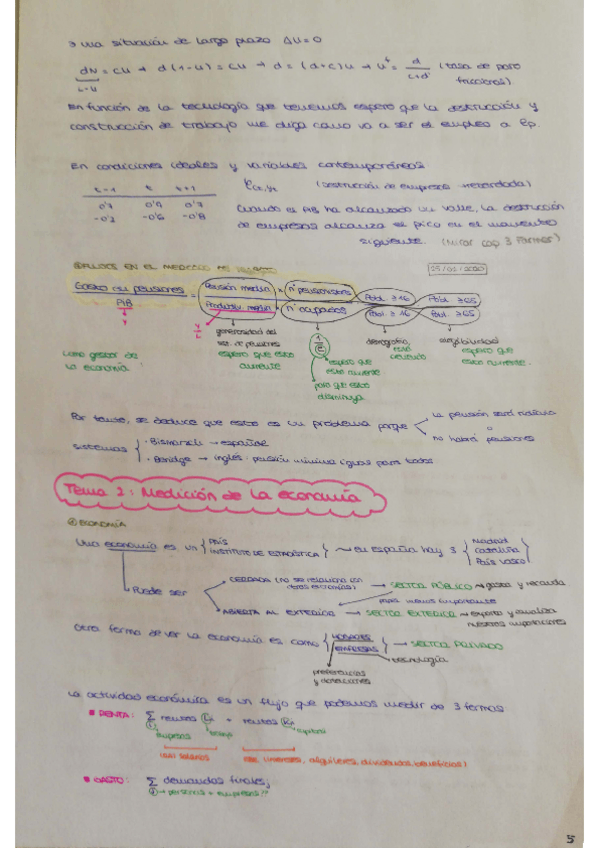 una situación de largo plazo Δu=0
dN = cu → d(1-u) = cu → d = (d+c)u → u* = d/(c+d) (tasa de paro
friccional)
En función de la tecnología que tenemos espero que la destrucción y
construcción de trabajo me diga como va a ser el empleo a lp.
En condiciones ideales y variables contemporáneas
t-1 t t+1
0'7 0'9 0'7
-0'3 -0'6 -0'8
(destrucción de empresas retardada)
Cuando el PIB ha alcanzado un valle, la destrucción
de empresas alcanza el pico en el momento
siguiente. (mirar cap 3 Farmer)
EN EL MERCADO DE TRABAJO
Gasto en pensiones / PIB = Pensión media / Productiv. media × nº pensionistas / nº ocupados × Pobl. ≥16 / Pobl. ≥16 × Pobl. ≥65 / Pobl. ≥65
Y
Y/L
generosidad del
sist. de pensiones
espero que esto
aumente
espero que
esto aumente
para que esto
disminuya
demografía
elegibilidad
espero que
esto aumente.
como gestor de
la economía
Por tanto, se deduce que esto es un problema porque
la pensión será ridícula
o
no habrá pensiones
sistemas
· Bismarck → español
· Beridge → inglés: pensión mínima igual para todos
Tema 2: Medición de la economía
ECONOMÍA
Una economía es un PAÍS
INSTITUTO DE ESTADÍSTICA
→ en España hay 3
Madrid
Cataluña
País Vasco
Puede ser
CERRADA (no se relaciona con
otras economías) → SECTOR PÚBLICO → gasta y recauda
ABIERTA AL EXTERIOR → SECTOR EXTERIOR → exporta y
nuestras importaciones
Otra forma de ver la economía es como HOGARES
EMPRESAS → SECTOR PRIVADO
tecnología
preferencias
y dotaciones
La actividad económica es un flujo que podemos medir de 3 formas
RENTA: Σ rentas L + rentas K
empresas trabajo capital
(sal. salarios) (intereses, alquileres, dividendos, beneficios)
GASTO: Σ demandas finales
→ personas + empresas
5